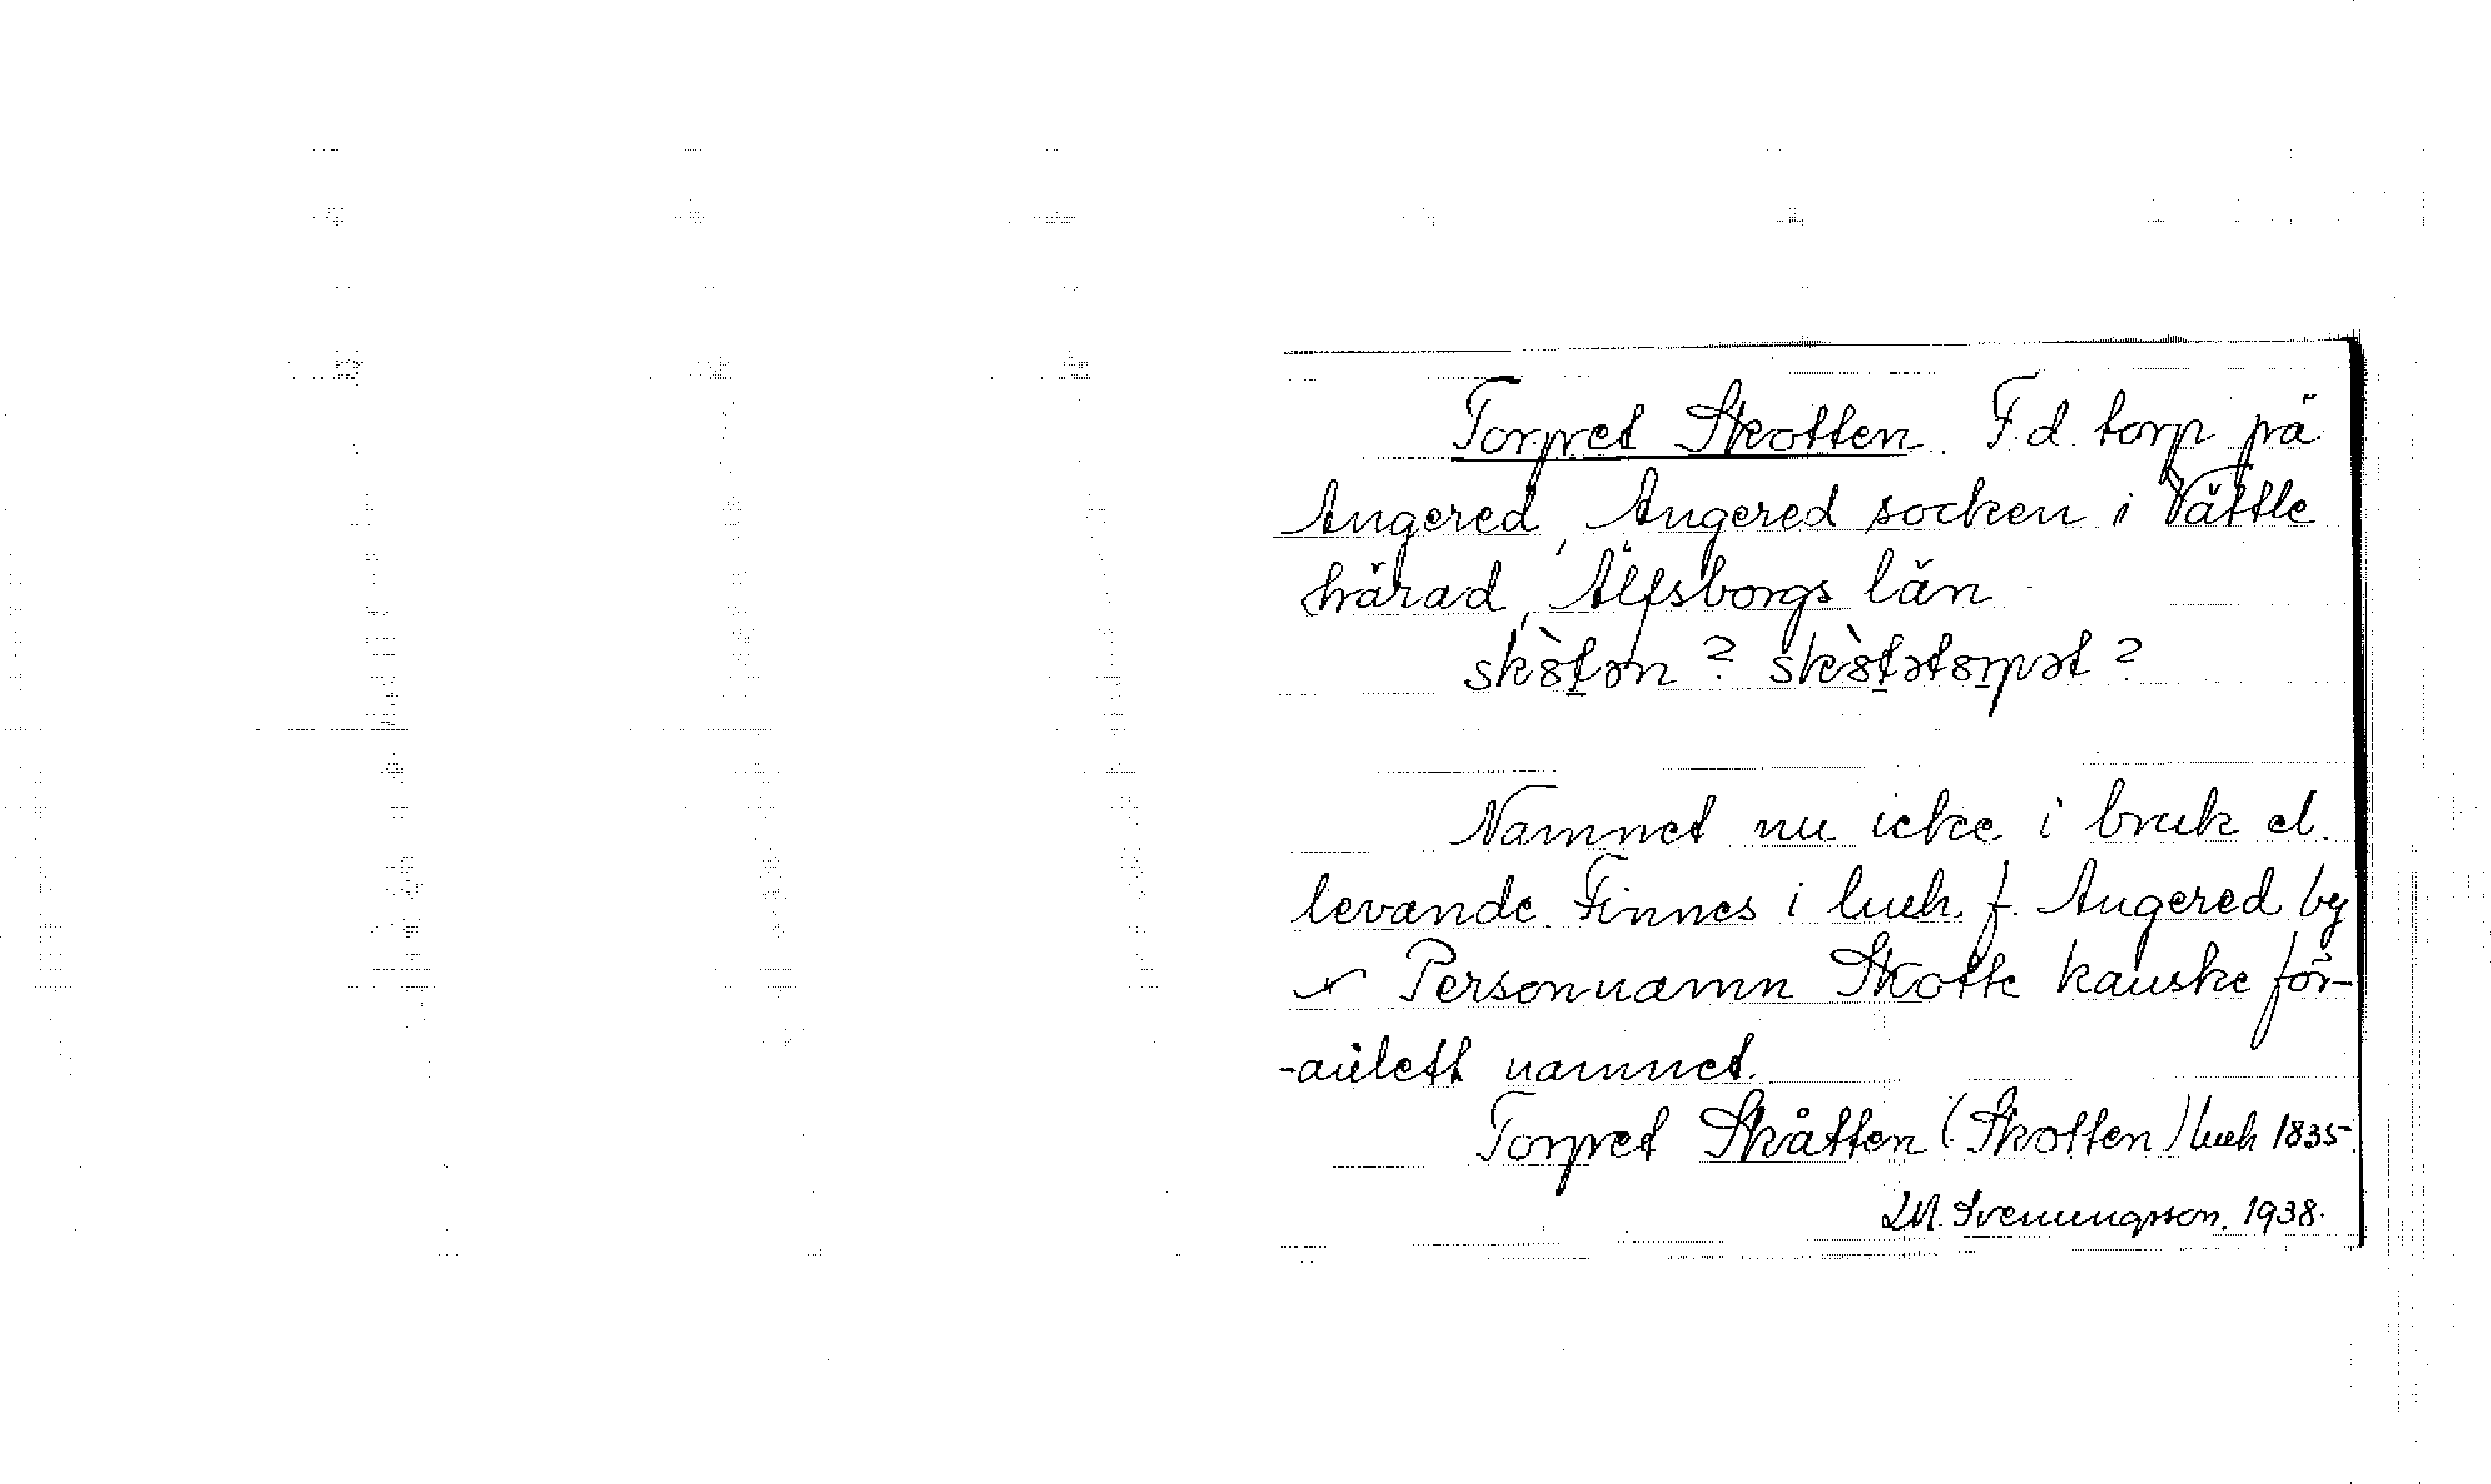 Torpet Skotten. F.d. torp på
Angered, Angered socken i Vättle
härad, Älfsborgs län
Namnet nu icke i bruk el.
levande. Finnes i luch. f. Angered by
Personnamn Skotte kanske för-
-anlett namnet.
Torpet Skåtten (Skotten) luch 1835.
L.M. Svenungsson. 1938.